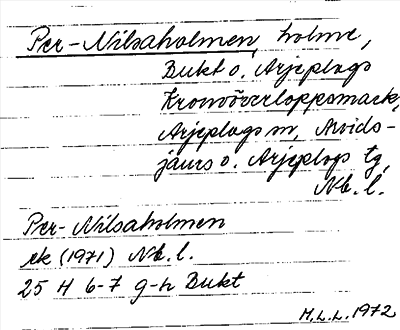 Per-Nilsaholmen, holme,
Bukt o. Arjeplogs
Kronoöverloppsmark,
Arjeplogs sn, Arvids-
jaurs o. Arjeplogs tg,
Nb. l.
Per-Nilsaholmen
ek (1971) Nb. l.
25 H 6-7 g-h Bukt
M.L.L. 1972